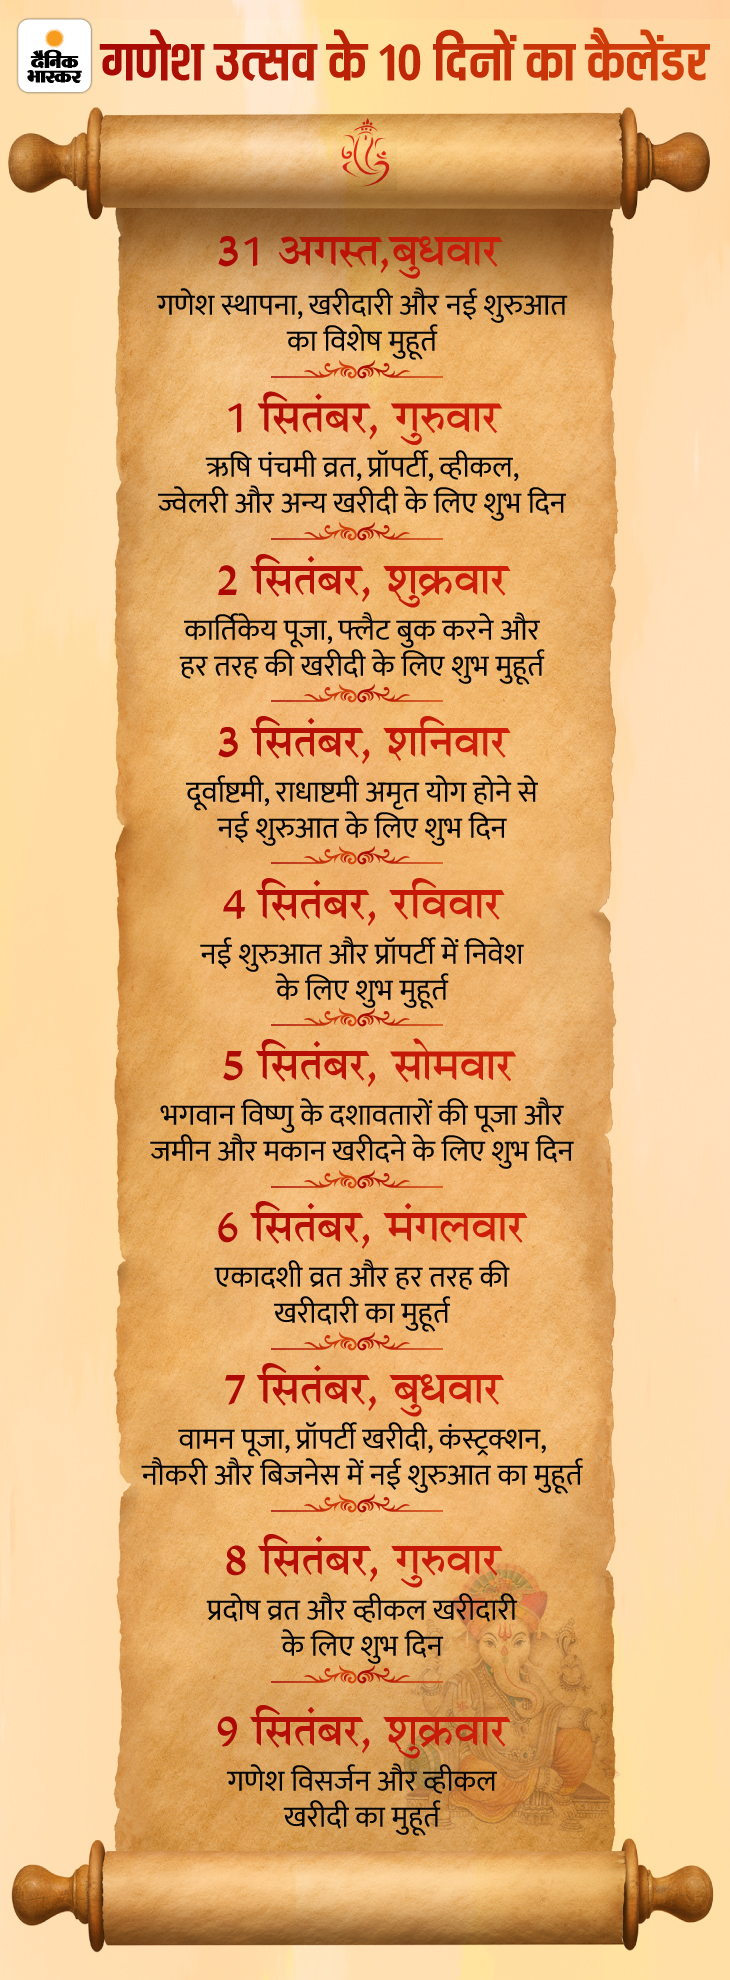 दैनिक
भास्कर
गणेश उत्सव के 10 दिनों का कैलेंडर
31 अगस्त,बुधवार
गणेश स्थापना, खरीदारी और नई शुरुआत
का विशेष मुहूर्त
1 सितंबर, गुरुवार
ऋषि पंचमी व्रत, प्रॉपर्टी, व्हीकल,
ज्वेलरी और अन्य खरीदी के लिए शुभ दिन
2 सितंबर, शुक्रवार
कार्तिकेय पूजा, फ्लैट बुक करने और
हर तरह की खरीदी के लिए शुभ मुहूर्त
3 सितंबर, शनिवार
दूर्वाष्टमी, राधाष्टमी अमृत योग होने से
नई शुरुआत के लिए शुभ दिन
4 सितंबर, रविवार
नई शुरुआत और प्रॉपर्टी में निवेश
के लिए शुभ मुहूर्त
5 सितंबर, सोमवार
भगवान विष्णु के दशावतारों की पूजा और
जमीन और मकान खरीदने के लिए शुभ दिन
6 सितंबर, मंगलवार
एकादशी व्रत और हर तरह की
खरीदारी का मुहूर्त
7 सितंबर, बुधवार
वामन पूजा, प्रॉपर्टी खरीदी, कंस्ट्रक्शन,
नौकरी और बिजनेस में नई शुरुआत का मुहूर्त
8 सितंबर, गुरुवार
प्रदोष व्रत और व्हीकल खरीदारी
के लिए शुभ दिन
9 सितंबर, शुक्रवार
गणेश विसर्जन और व्हीकल
खरीदी का मुहूर्त